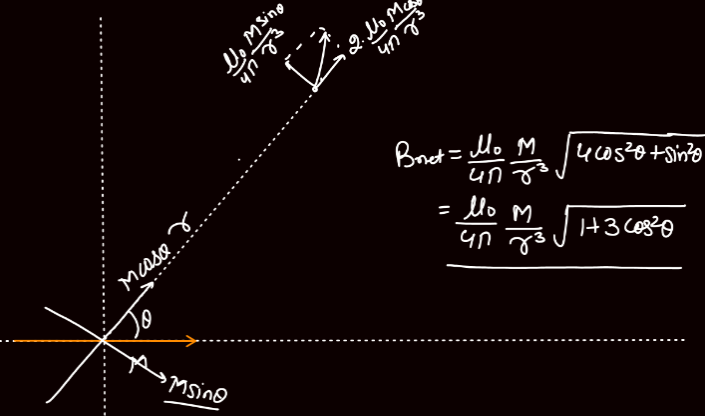 μ₀/4π M sinθ/r³
2. μ₀/4π M cosθ/r³
Bnet = μ₀/4π M/r³ √(4cos²θ + sin²θ)
= μ₀/4π M/r³ √(1+3cos²θ)
r
M cosθ
θ
M
M sinθ